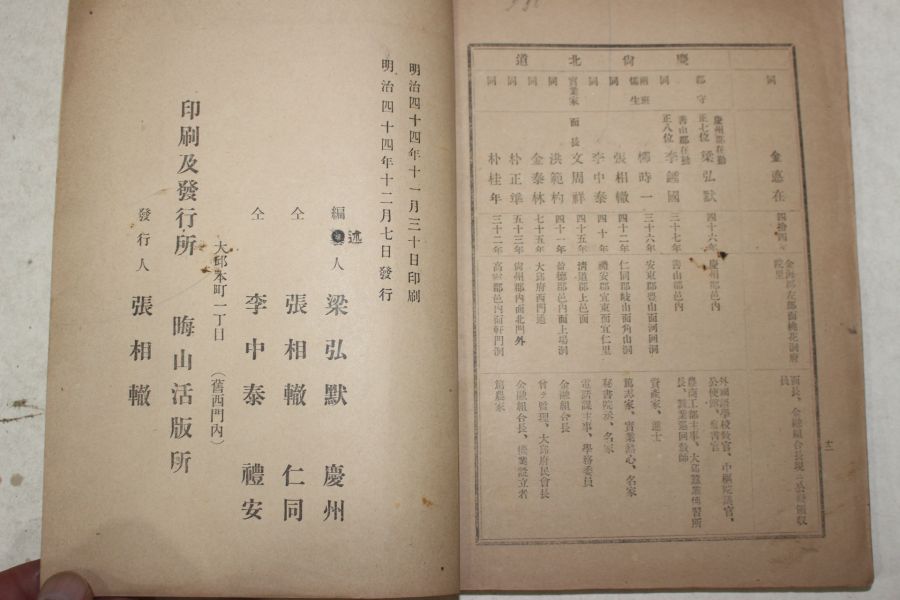 慶尙北道
同 金憲在 四拾四年 金海郡左部面桃花洞府院里
郡守 慶州郡在勤 正七位 梁弘默 四十六年 慶州郡邑內 外國語學校敎官、中樞院議官、公使館參書官
同 善山郡在勤 正八位 李鍾國 三十七年 善山郡邑內 農商工部主事、大邱
兩班儒生 柳時一 三十六年 安東郡豊山面河回洞 資產家、進士
同 張相轍 四十二年 仁同郡岐山面角山洞 篤志家、實業熱心、名家
同 李中泰 四十年 禮安郡宜東面宜仁里 秘書院丞、名家
面長 文周祥 四十五年 淸道郡上邑面 電話課主事、學務委員
實業家 洪範杓 四十一年 盈德郡邑內面上場洞 金融組合長
同 金泰林 七十五年 大邱府西門通 曾テ監理、大邱府民會長
同 朴正準 五十三年 尙州郡內面北門外 金融組合長、
同 朴桂年 三十二年 高靈郡邑內面軒門洞 篤農家
十二
明治四十四年十一月三十日印刷
明治四十四年十二月七日發行
編述人 梁弘默 慶州
仝 張相轍 仁同
仝 李中泰 禮安
大邱本町一丁目 (舊西門內)
印刷及發行所 晦山活版所
發行人 張相轍